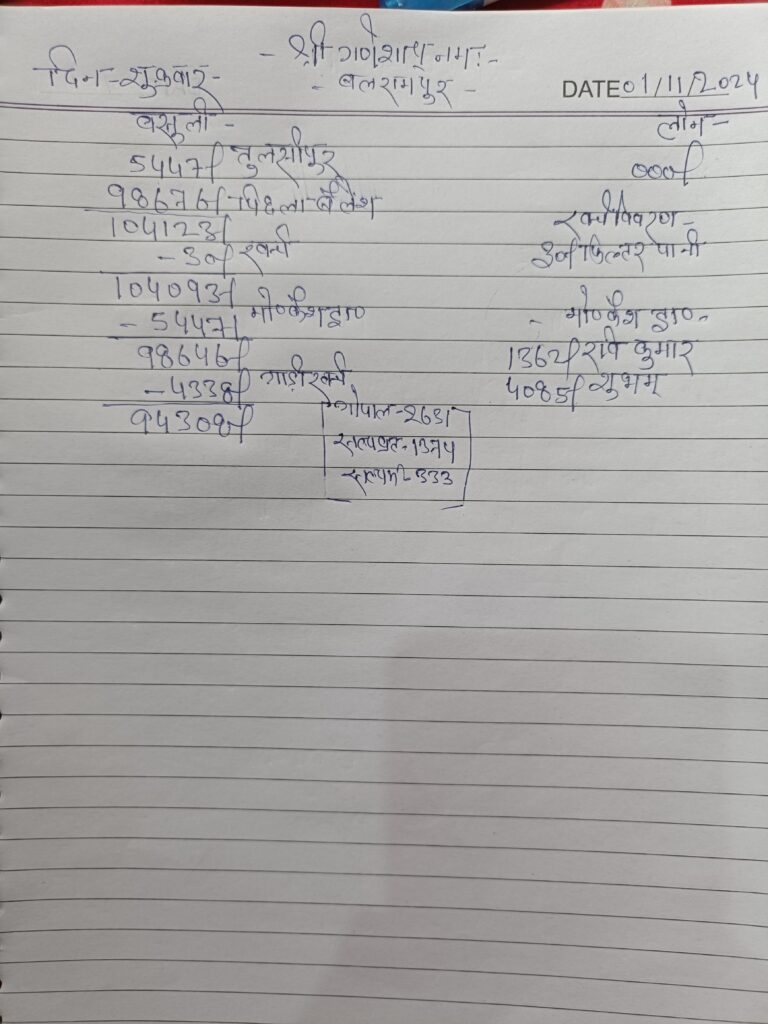 - श्री गणेशाय नमः -
दिन - शुक्रवार -
- बलरामपुर -
DATE 01/11/2024
वसूली -
5447/ तुलसीपुर
98676/ - पिछला बैलेंश
104123/
- 30/ खर्चा
104093/
- 5447/ मो०कैश ड्रा०
98646/
- 4338/ गाड़ी खर्च
94308/
गोपाल - 2631
सत्यव्रत - 1374
333
लोन -
000/
खर्च विवरण -
30/ फिल्टर पानी
- मो०कैश ड्रा० -
1362/ रवि कुमार
4085/ शुभम